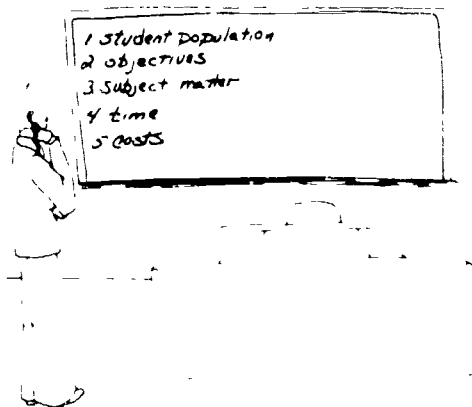 1 student population
2 objectives
3 Subject matter
4 time
5 costs